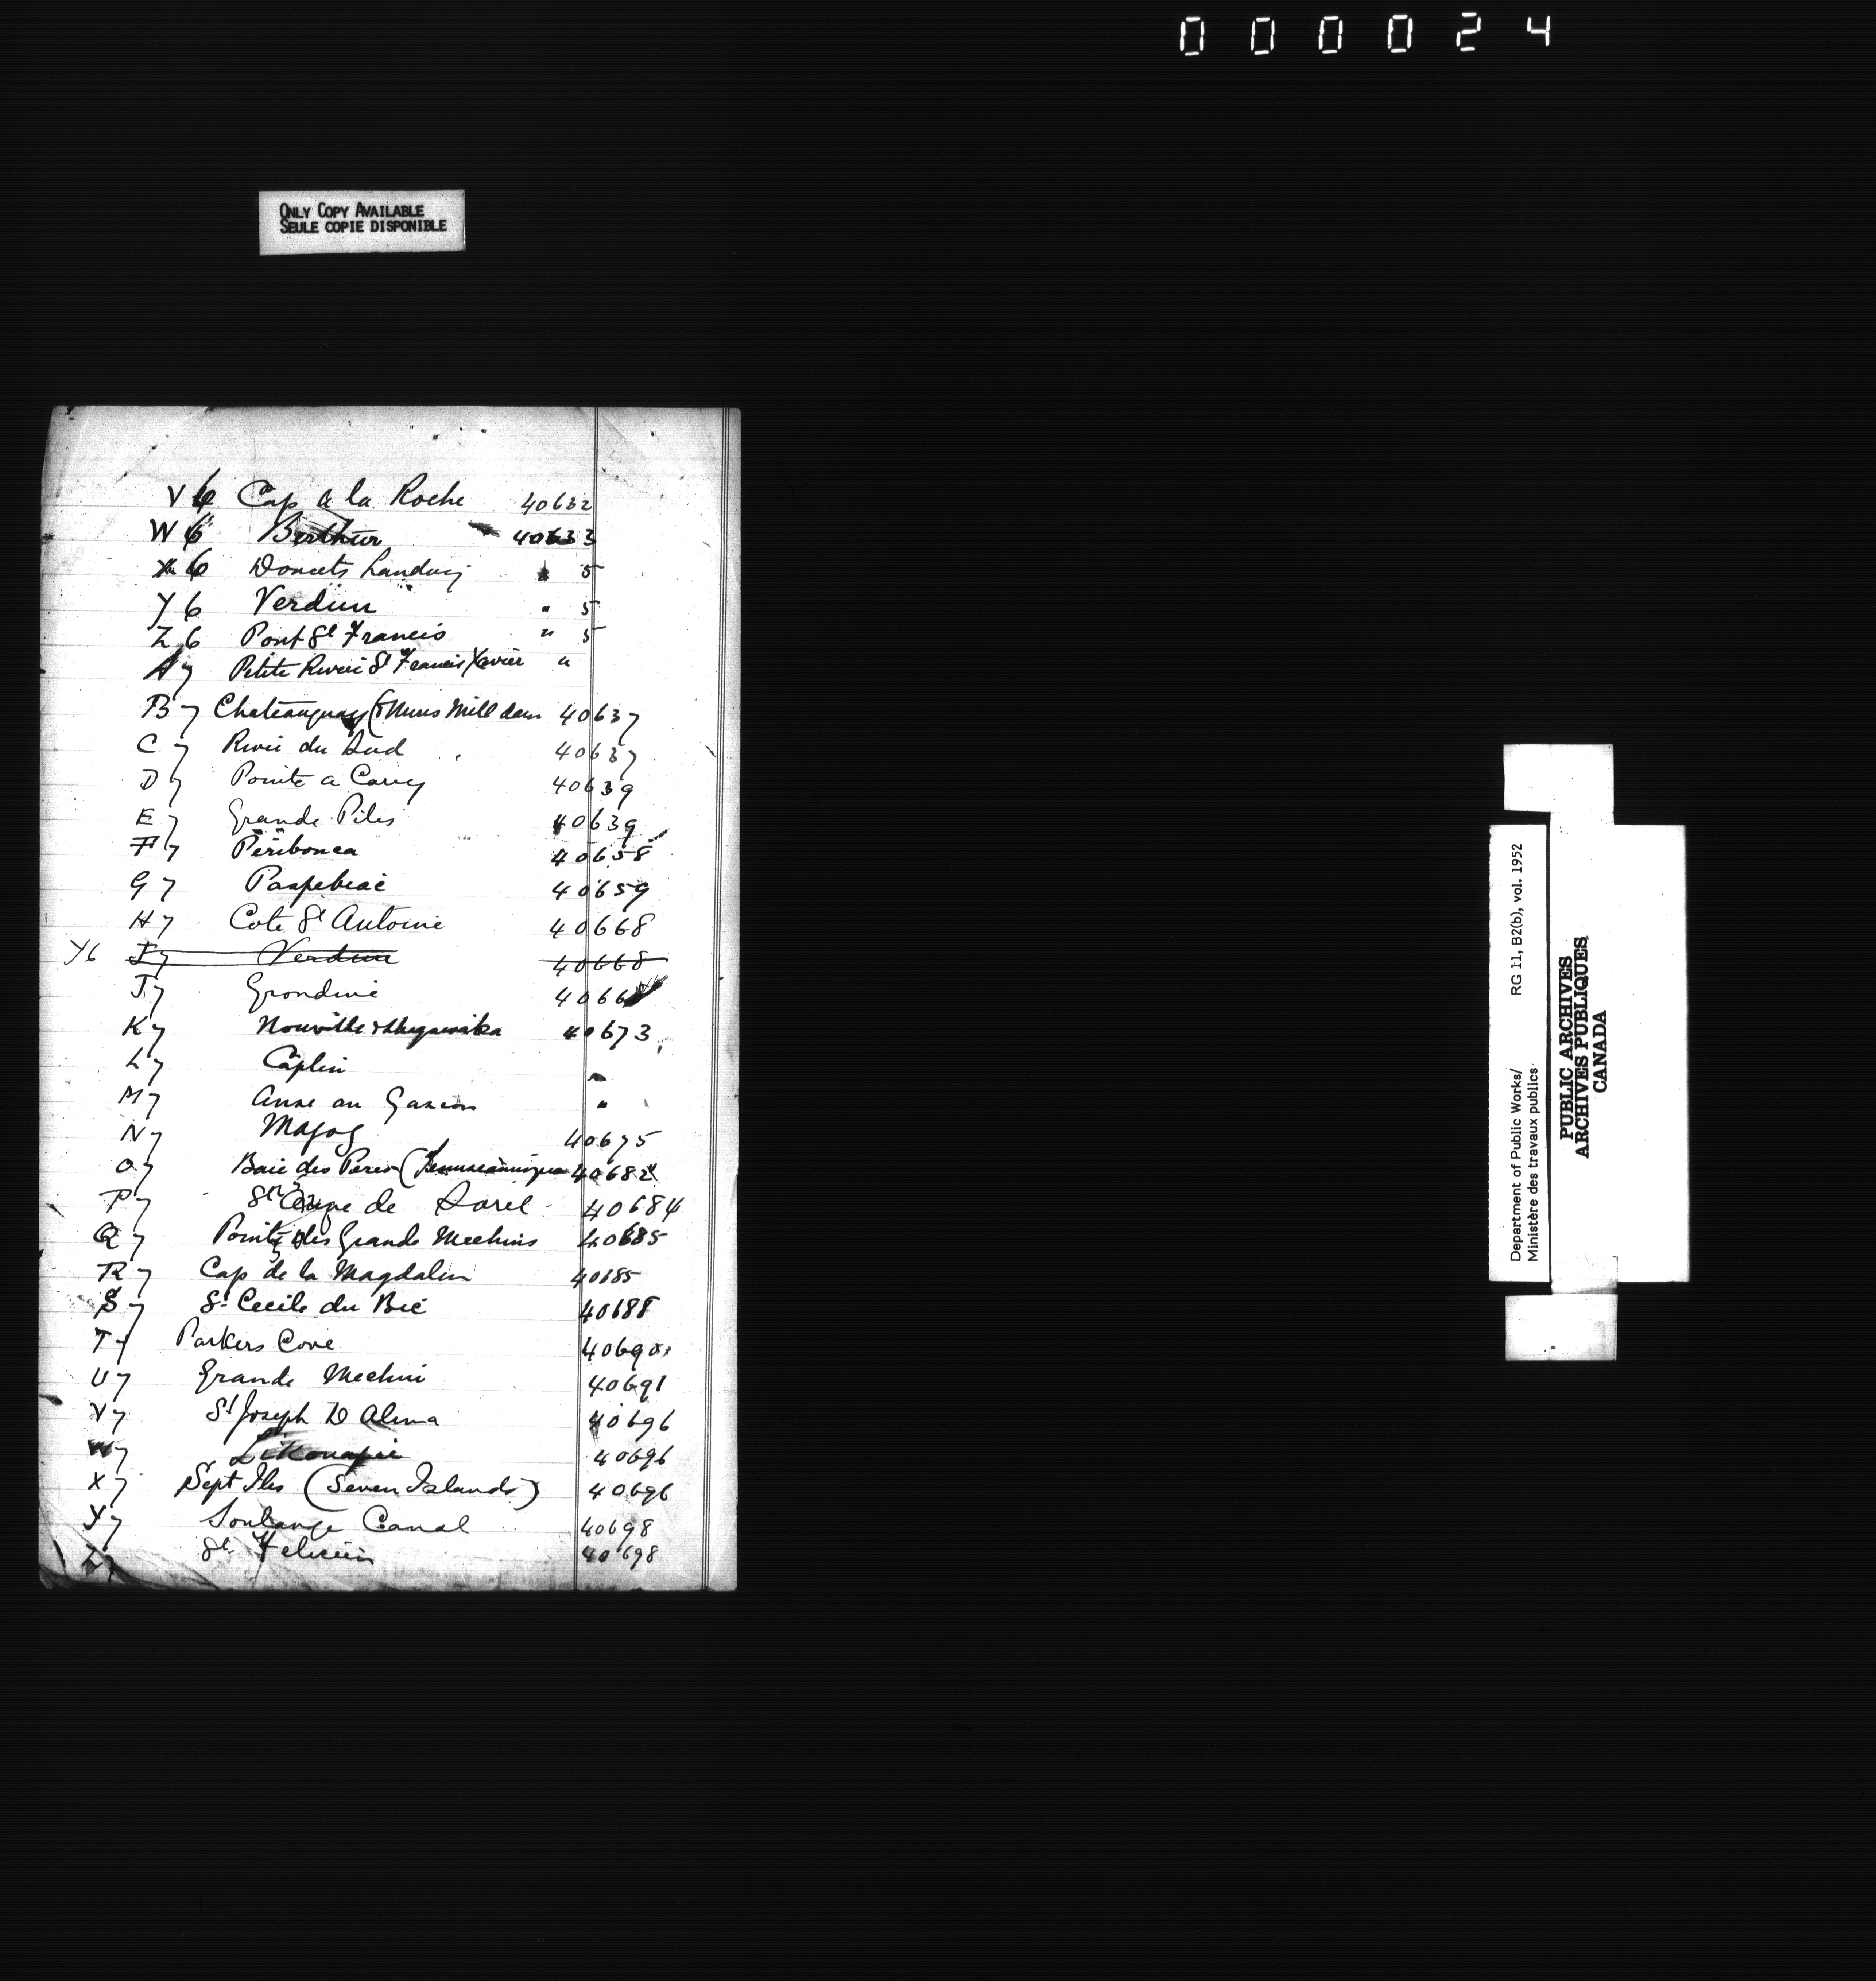 000024
ONLY COPY AVAILABLE
SEULE COPIE DISPONIBLE
V 6 Cap à la Roche 40632
W 6 Berthier 40633
X 6 Doucets Landing " 5
Y 6 Verdun " 5
Z 6 Port St Francis " 5
A 7 Petite Riviere St Francis Xavier "
B 7 Chateauguay ( Mill dam 40637
C 7 Rivie du Sud 40637
D 7 Pointe a Carcy 40639
E 7 Grande Piles 40639
F 7 Peribonca 40658
G 7 Paspebiac 40659
H 7 Cote St Antoine 40668
Y6 I 7 Verdun 40668
J 7 Grondine 4066
K 7 Nouville & 40673
L 7 Caplin "
M 7 Anse au Gascon "
N 7 Magog 40675
O 7 Baie des Peres ( 40682
P 7 St de Sorel 40684
Q 7 Pointe des Grande Mechins 40685
R 7 Cap de la Magdalen 40685
S 7 St Cecile du Bic 40688
T 7 Parkers Cove 40690
U 7 Grande Mechin 40691
V 7 St Joseph D Alma 40696
W 7 40696
X 7 Sept Iles (Seven Islands) 40696
Y 7 Soulange Canal 40698
Z 7 St Felicien 40698
Department of Public Works/ RG 11, B2(b), vol. 1952
Ministère des travaux publics
PUBLIC ARCHIVES
ARCHIVES PUBLIQUES
CANADA